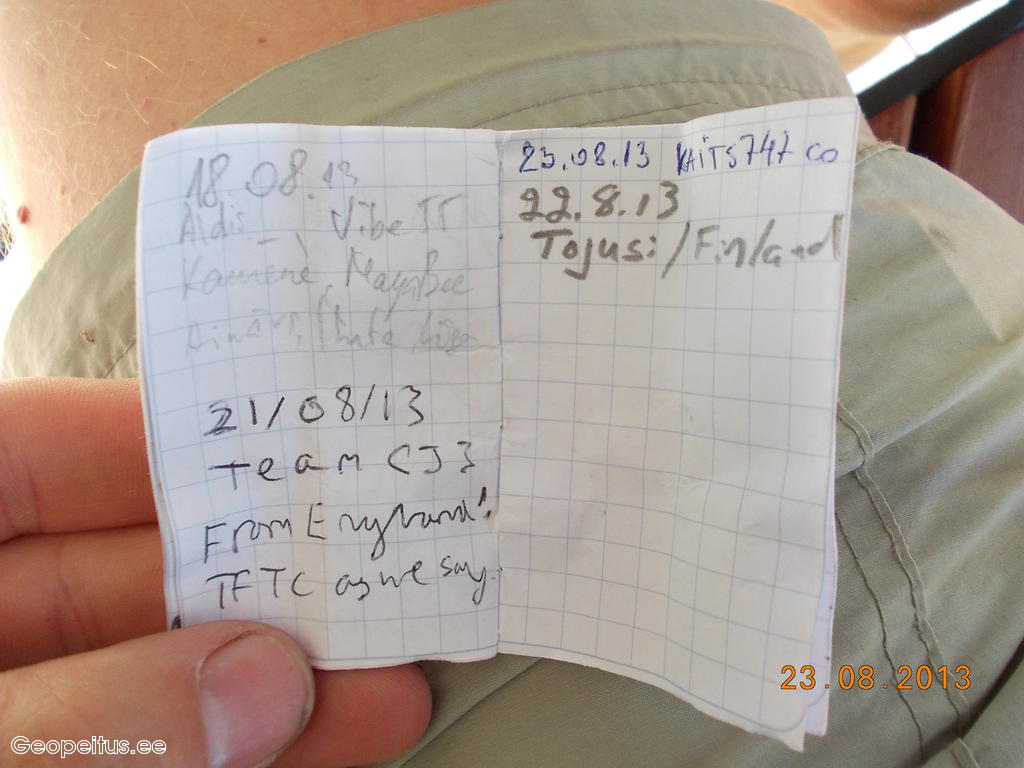 18.08.13
Aldis Vibe TT
21/08/13
Team CJ3
From England!
TFTC as we say.
23.08.13 KAITS747 CO
22.8.13
Tojusi/Finland
23.08.2013
Geopeitus.ee